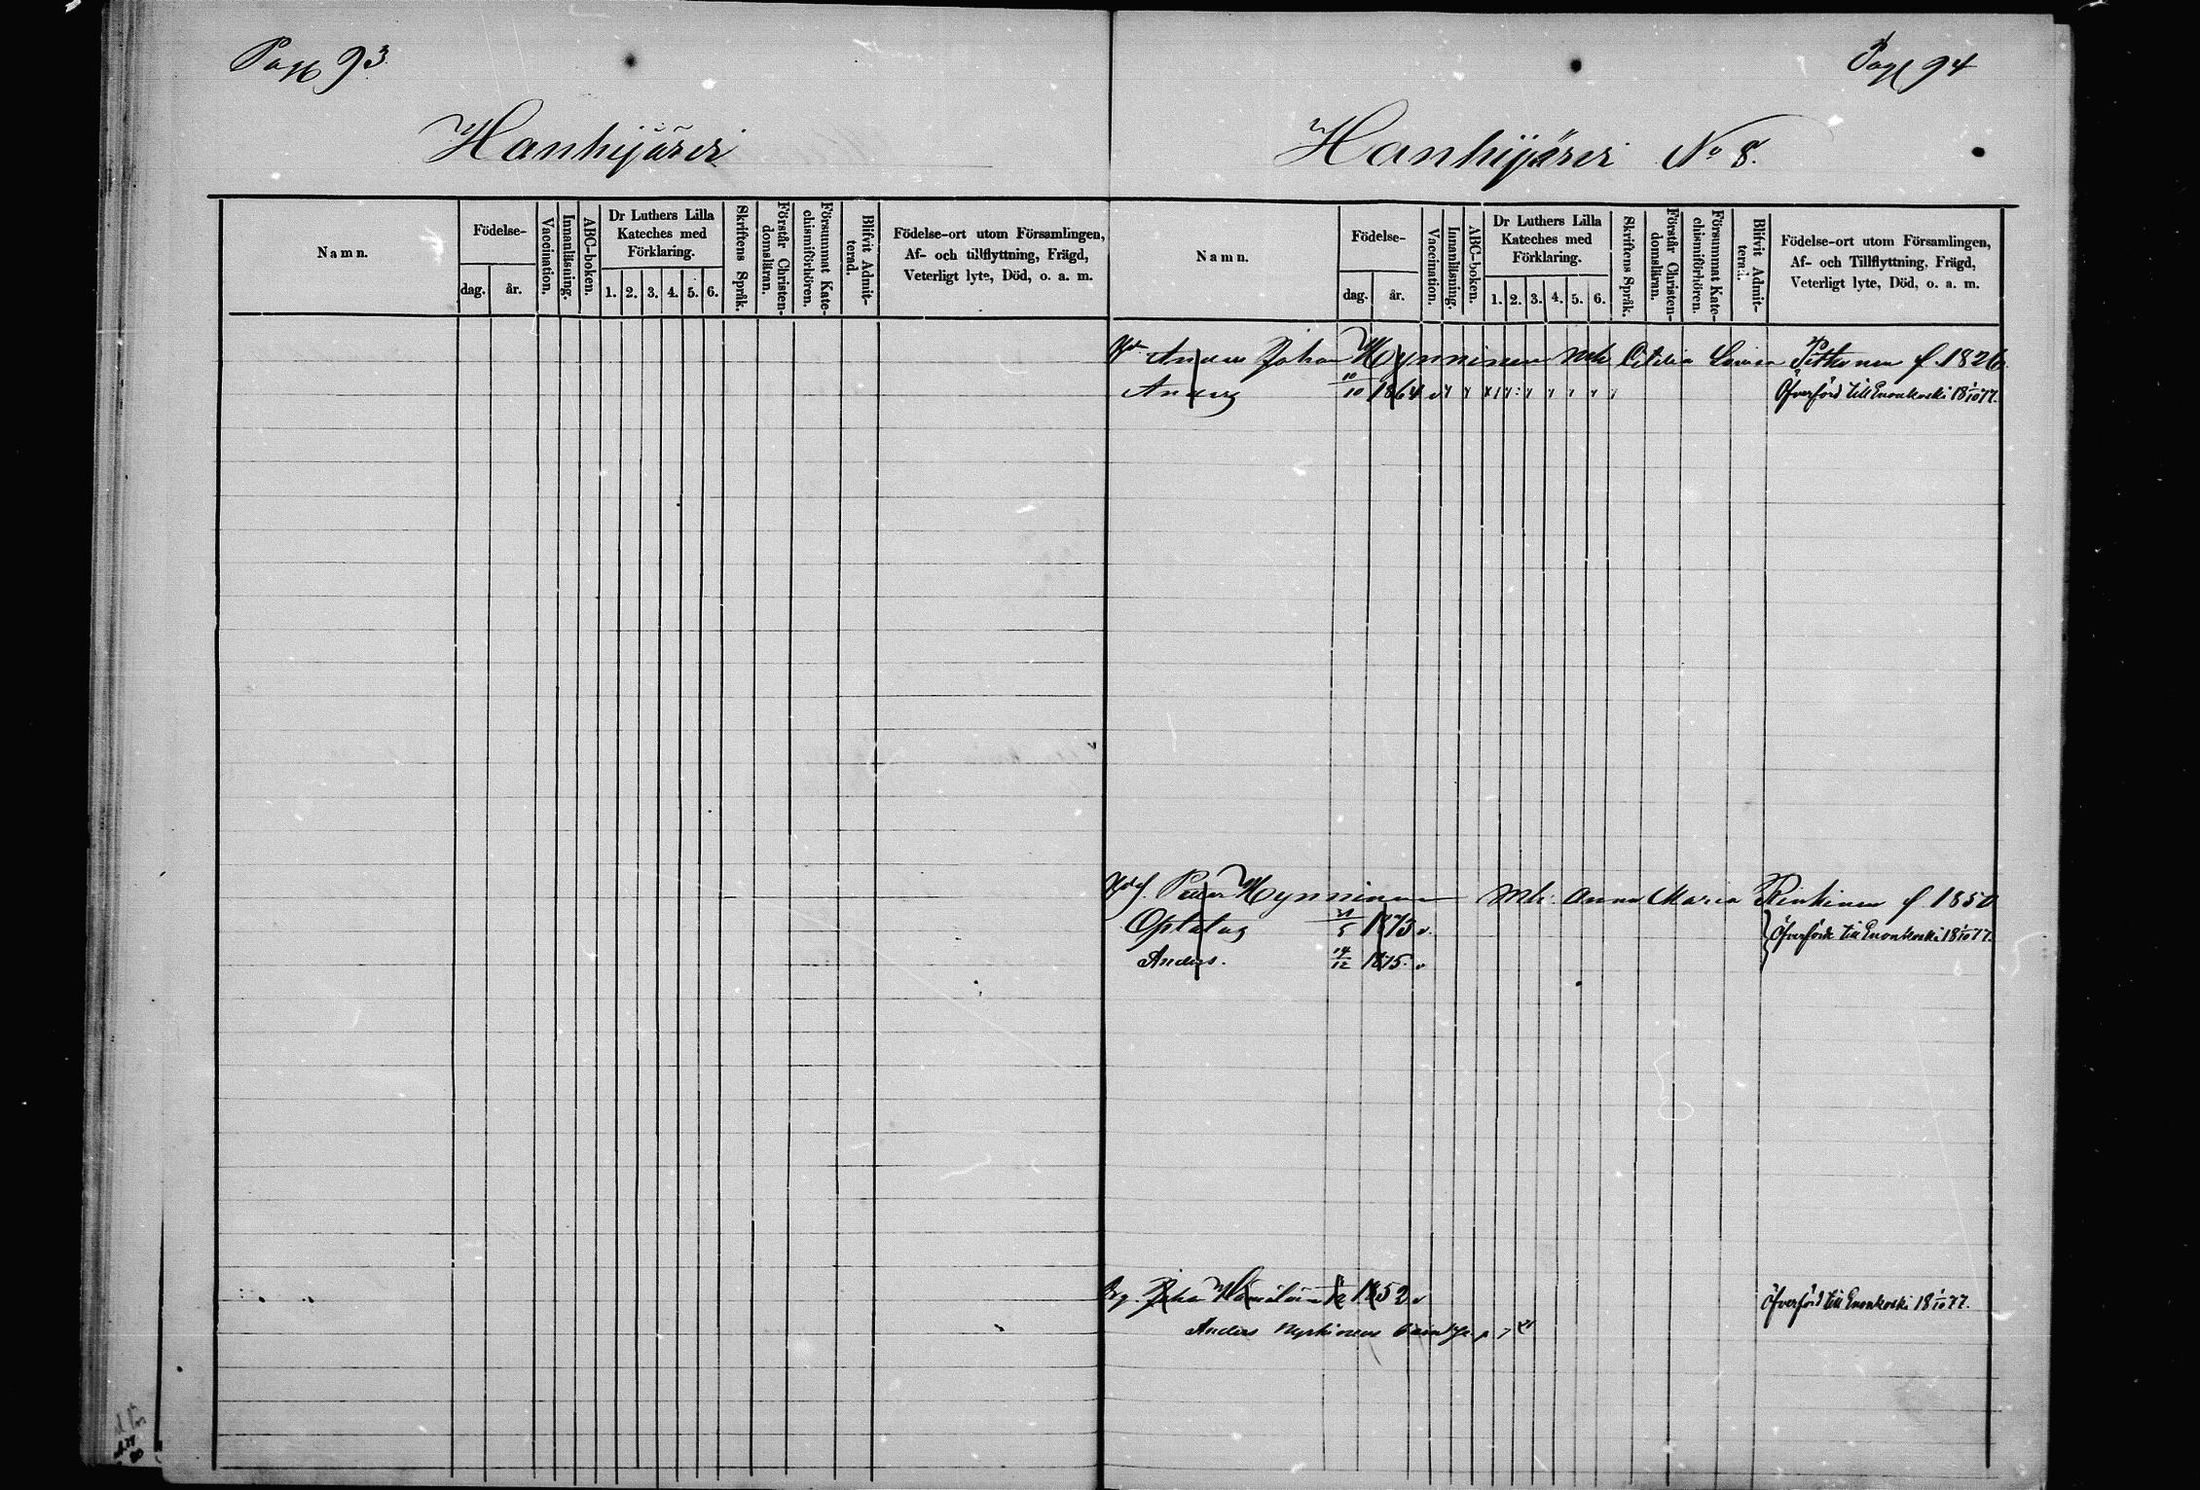 Pag 93
Hanhijärvi
Namn.
Födelse-
dag.
år.
Vaccination.
Innanläsning.
ABC-boken.
Dr Luthers Lilla
Kateches med
Förklaring.
1. 2. 3. 4. 5. 6.
Skriftens Språk.
Förstår Christen-
domsläran.
Försummat Kate-
chismiförhören.
Blifvit Admit-
terad.
Födelse-ort utom Församlingen,
Af- och tillflyttning, Frägd,
Veterligt lyte, Död, o. a. m.
Pag 94
Hanhijärvi No 8.
Namn.
Födelse-
dag.
år.
Vaccination.
Innanläsning.
ABC-boken.
Dr Luthers Lilla
Kateches med
Förklaring.
1. 2. 3. 4. 5. 6.
Skriftens Språk.
Förstår Christen-
domsläran.
Försummat Kate-
chismiförhören.
Blifvit Admit-
terad.
Födelse-ort utom Församlingen,
Af- och Tillflyttning, Frägd,
Veterligt lyte, Död, o. a. m.
Anders Johan Hynninen Mh. Cecilia Lovisa Pitkonen f. 1826.
Anders 10/10 1864 v Öfverförd till Enonkoski 18 1/10 77.
Petter Hynninen Mh. Anna Maria Rinkinen f. 1850
Optatus 5 1873 v. Öfverförde till Enonkoski 18 1/10 77.
Anders. 14/12 1875. v
Johan 1852 v Öfverförd till Enonkoski 18 1/10 77.
Anders